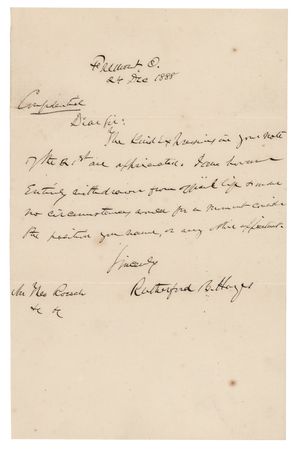 Fremont O.
24 Dec 1888
Confidential
Dear Sir:
The kind expressions in your note
of the 21st are appreciated. I am however
Entirely withdrawn from official life & under
no circumstances would for a moment consider
the position you name, or any other appointment.
Sincerely
Rutherford B. Hayes
Mr